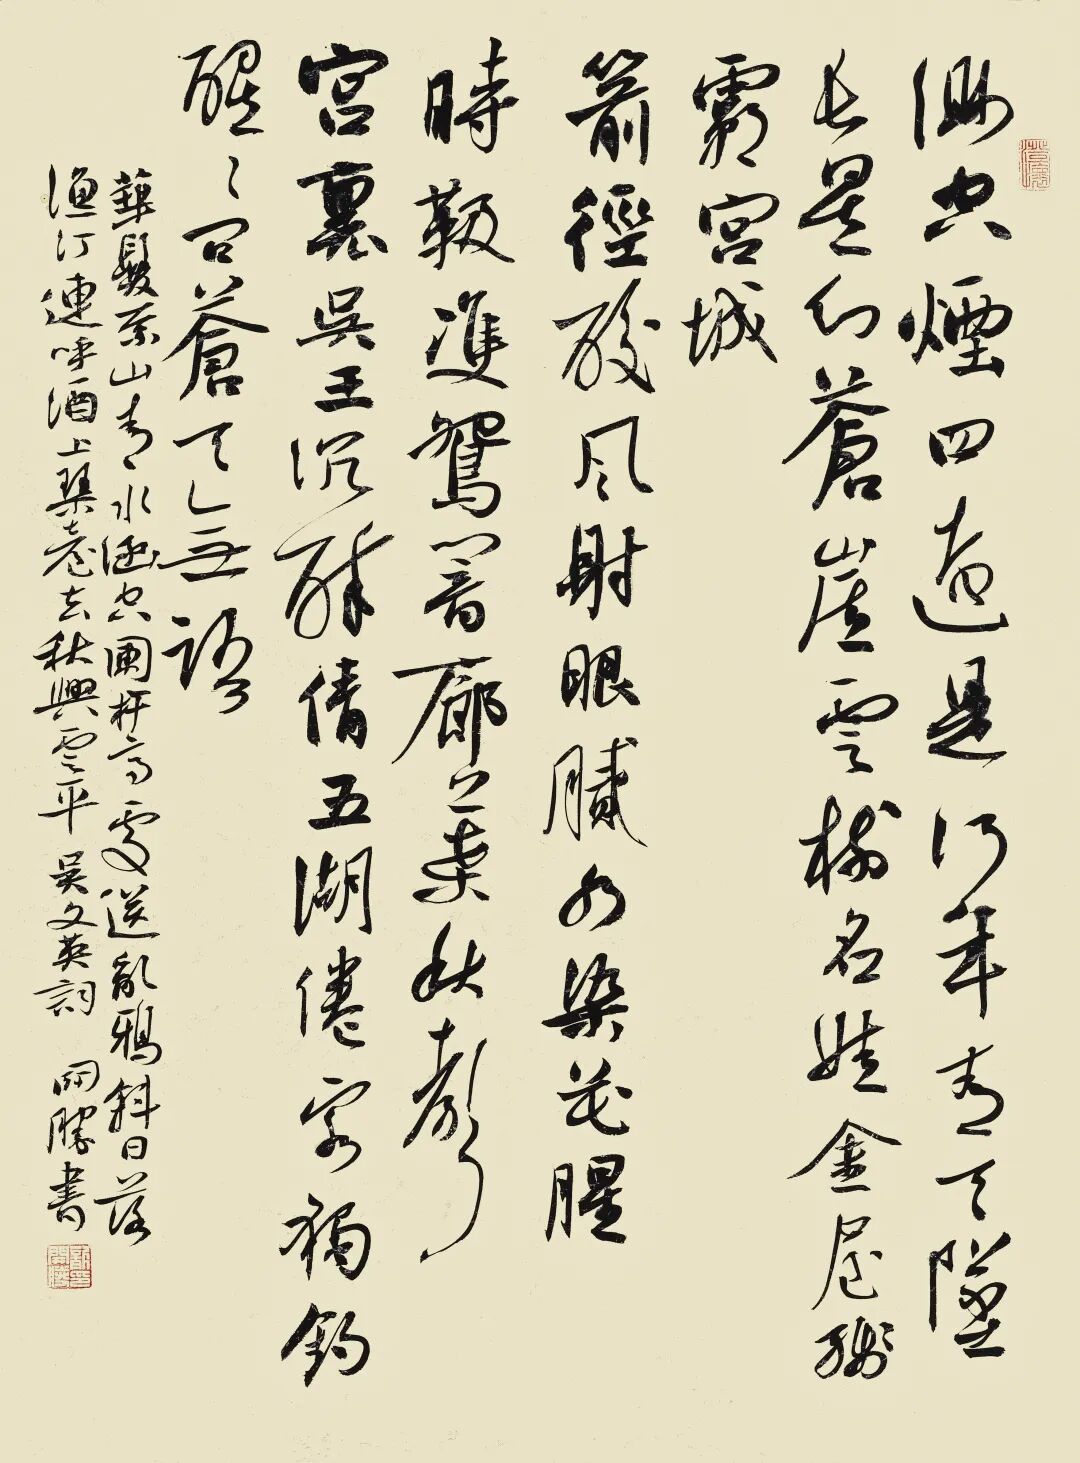 渺空煙四遠是何年青天墜
長星幻蒼崖雲樹名娃金屋殘
霸宮城
箭徑酸風射眼膩水染花腥
時靸雙鴛響廊葉秋聲
宮裏吳王沉醉倩五湖倦客獨釣
醒〻問蒼天無語
華髮奈山青水涵空闌杆高處送亂鴉斜日落
漁汀連呼酒上琴臺去秋與雲平 吳文英詞 開勝書